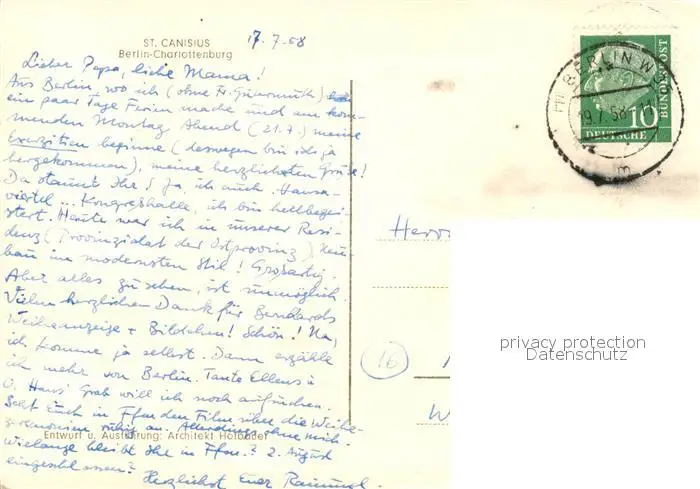 ST. CANISIUS
Berlin-Charlottenburg
17.7.58
Lieber Papa, liebe Mama!
Aus Berlin, wo ich (ohne Fr.
ein paar Tage Ferien mache und am kom-
menden Montag Abend (21.7.) meine
Exerzitien beginne (deswegen bin ich ja
hergekommen), meine herzlichsten Grüße!
Da staunt Ihr? Ja, ich auch. Hansa-
viertel... Kongreßhalle, ich bin hellbegei-
stert. Heute war ich in unserer Resi-
denz (Provinzialat der Ostprovinz) Neu-
bau im modernsten Stil! Großartig.
Aber alles zu sehen, ist unmöglich.
Vielen herzlichen Dank für Bernhards
Weiheanzeige + Bildchen! Schön! Na,
ich komme ja selbst. Dann erzähle
ich mehr von Berlin. Tante Ellens
O. Hans' Grab will ich noch aufsuchen.
Seht Euch in Ffm den Film über die Weihe-
zeremonien ruhig an. Allerdings ohne mich.
Entwurf u. Ausführung: Architekt Hofbauer
Wielange bleibt Ihr in Ffm? 2. August
eingeschlossen?
Herzlichst Euer
BERLIN W
19.7.58
10
DEUTSCHE
BUNDESPOST
Herrn
16
W
privacy protection
Datenschutz